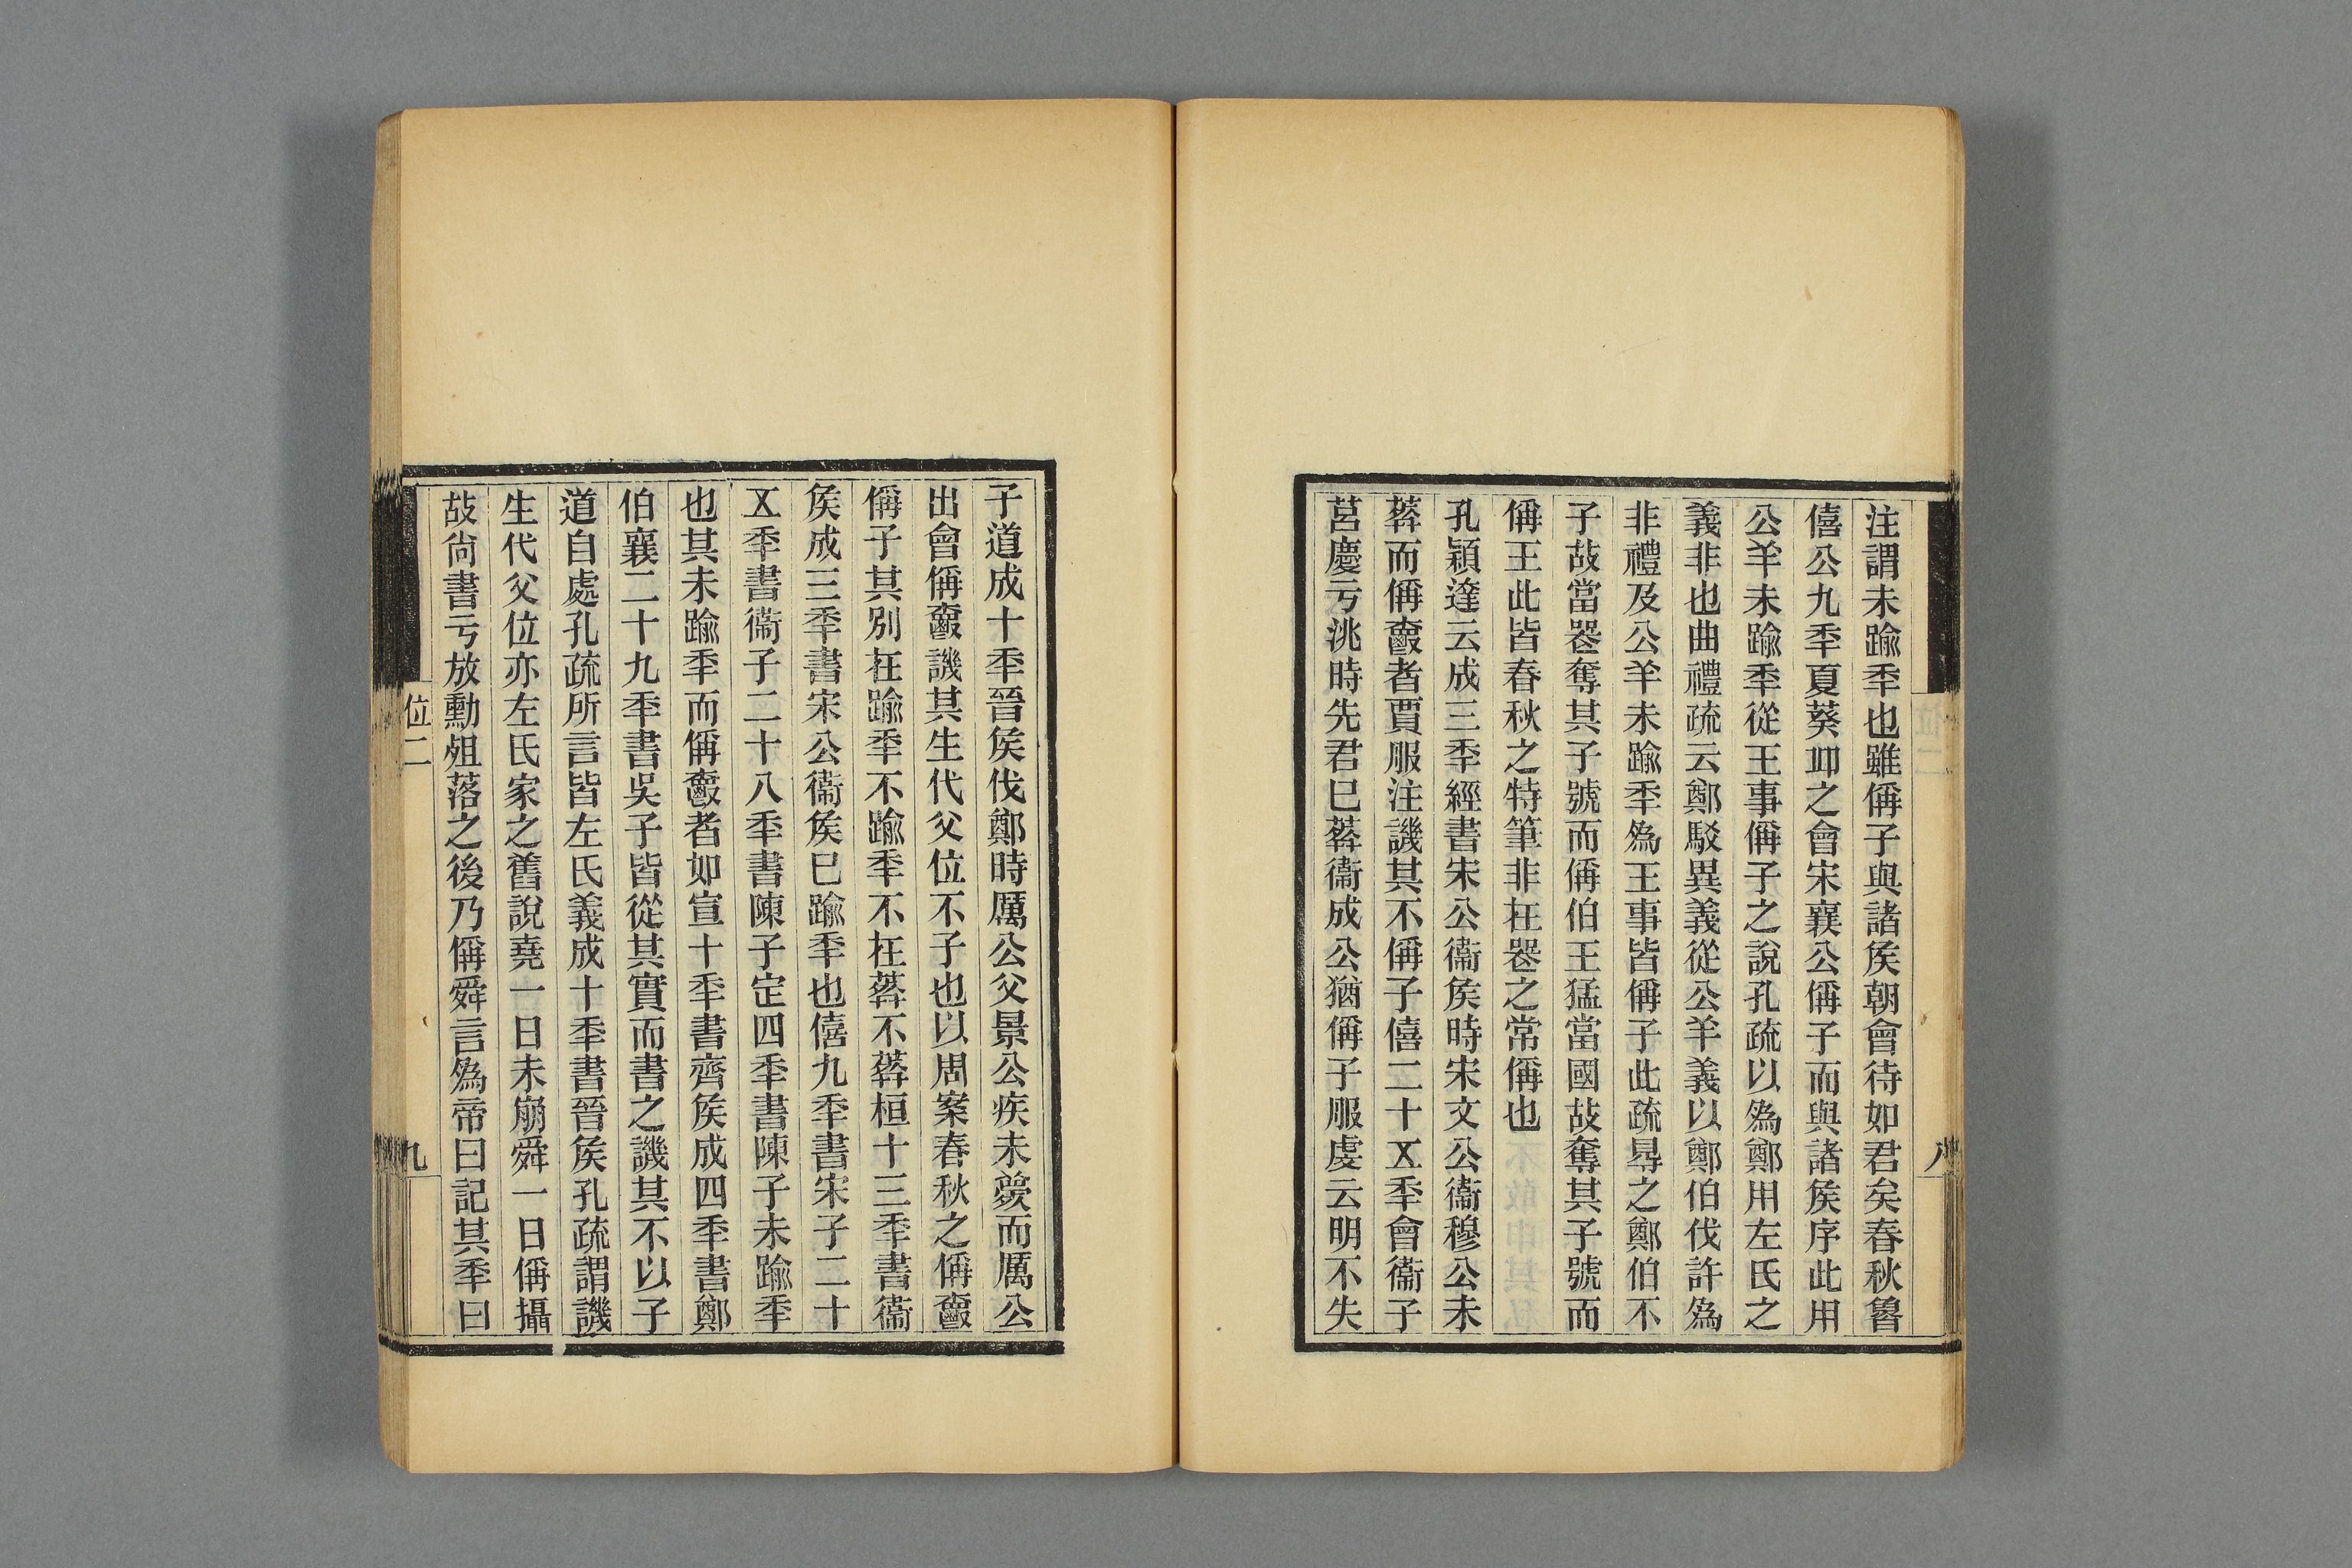 注謂未踰秊也雖偁子與諸矦朝會待如君矣春秋魯
僖公九秊夏葵丠之會宋襄公偁子而與諸矦序此用
公羊未踰秊從王事偁子之說孔疏以爲鄭用左氏之
義非也曲禮疏云鄭駁異義從公羊義以鄭伯伐許爲
非禮及公羊未踰秊爲王事皆偁子此疏㝵之鄭伯不
子故當喪奪其子號而偁伯王猛當國故奪其子號而
偁王此皆春秋之特筆非在喪之常偁也
孔穎達云成三秊經書宋公衞矦時宋文公衞穆公未
葬而偁爵者賈服注譏其不偁子僖二十五秊會衞子
莒慶亏洮時先君已葬衞成公猶偁子服虔云明不失
八
子道成十秊晉矦伐鄭時厲公父景公疾未薨而厲公
出會偁爵譏其生代父位不子也以周案春秋之偁爵
偁子其別在踰秊不踰秊不在葬不葬桓十三秊書衞
矦成三秊書宋公衞矦已踰秊也僖九秊書宋子二十
五秊書衞子二十八秊書陳子定四秊書陳子未踰秊
也其未踰秊而偁爵者如宣十秊書齊矦成四秊書鄭
伯襄二十九秊書吳子皆從其實而書之譏其不以子
道自處孔疏所言皆左氏義成十秊書晉矦孔疏謂譏
生代父位亦左氏家之舊說堯一日未崩舜一日偁攝
故尙書亏放勳殂落之後乃偁舜言爲帝曰記其秊曰
位二
九